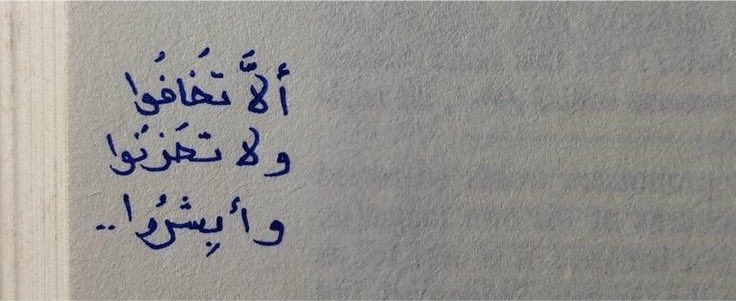 ألَّا تَخَافُوا
ولا تحَزنُوا
وأبِشرُوا..